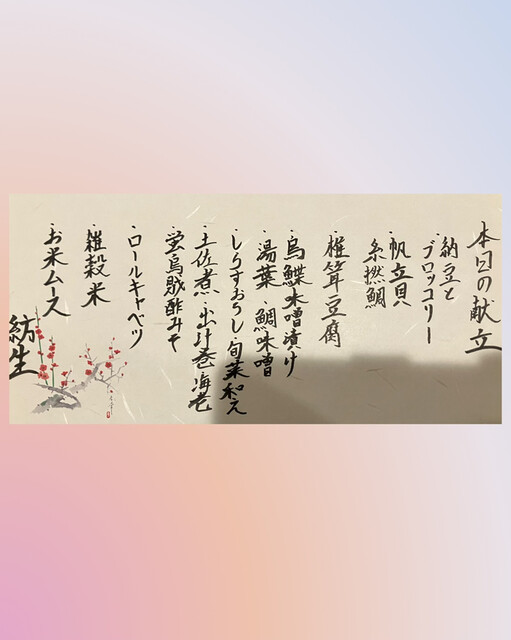 本日の献立
・納豆と
ブロッコリー
・帆立貝
・糸撚鯛
・椎茸豆腐
・烏鰈味噌漬け
・湯葉・鯛味噌
・しらすおろし 旬菜和え
・土佐煮・出汁巻・海老
・蛍烏賊酢みそ
・ロールキャベツ
・雑穀米
・お米ムース
紡生